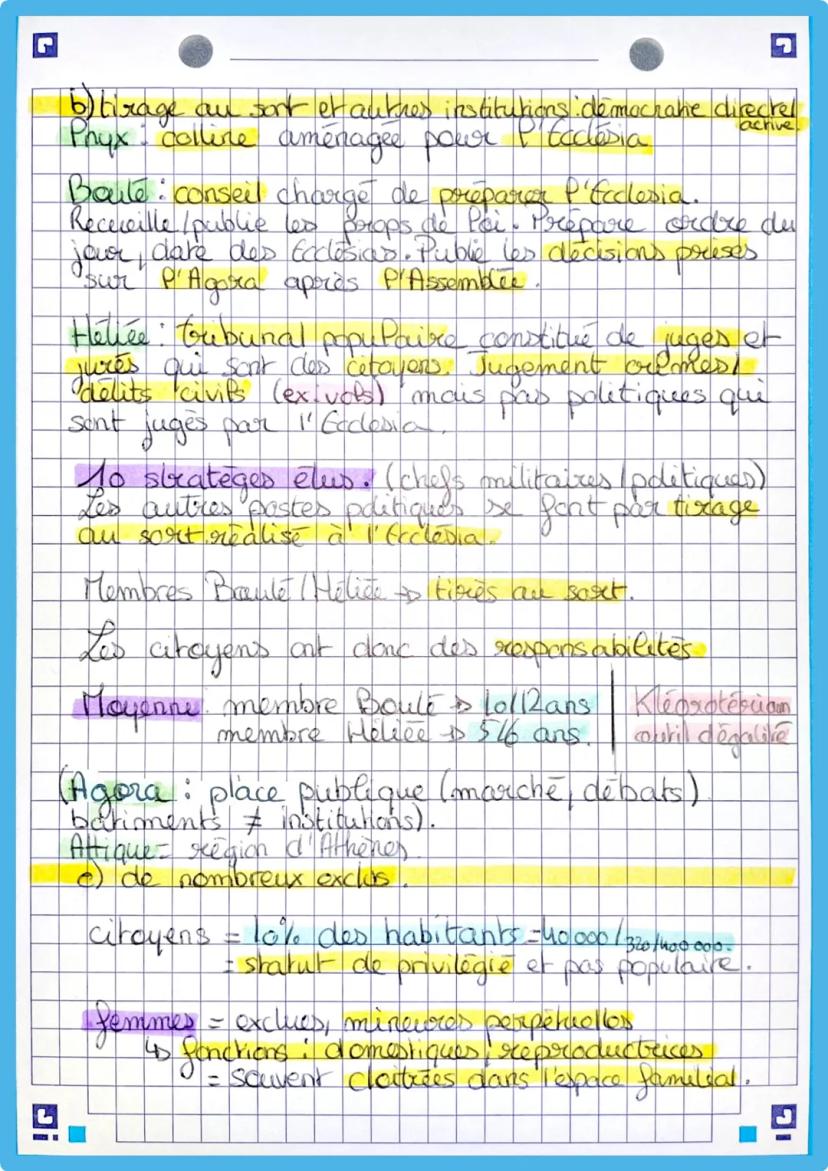 b) tirage au sort et autres institutions : démocratie directe/
active.
Pnyx : colline aménagée pour l'Ecclésia
Boulé : conseil chargé de préparer l'Ecclesia.
Receuille/publie les props de loi. Prépare ordre du
jour, date des Ecclésias. Publie les décisions prises
sur l'Agora après l'Assemblée.
Héliée : tribunal populaire constitué de juges et
jurés qui sont des citoyens. Jugement crimes/
délits civils (ex: vols) mais pas politiques qui
sont jugés par l'Ecclesia.
10 stratèges élus. (chefs militaires/politiques)
Les autres postes politiques se font par tirage
au sort réalisé à l'Ecclésia.
Membres Boulé/Héliée → tirés au sort.
Les citoyens ont donc des responsabilités
Moyenne membre Boulé → 10/12 ans | Klérotérion
membre Héliée → 5/6 ans. | outil d'égalité
(Agora : place publique (marché, débats)
bâtiments ≠ institutions).
Attique = région d'Athènes.
c) de nombreux exclus.
citoyens = 10% des habitants = 40 000/320/400 000.
= statut de privilégié et pas populaire.
femmes = exclues, mineures perpétuelles
↳ fonctions : domestiques, reproductrices
= souvent cloîtrées dans l'espace familial.